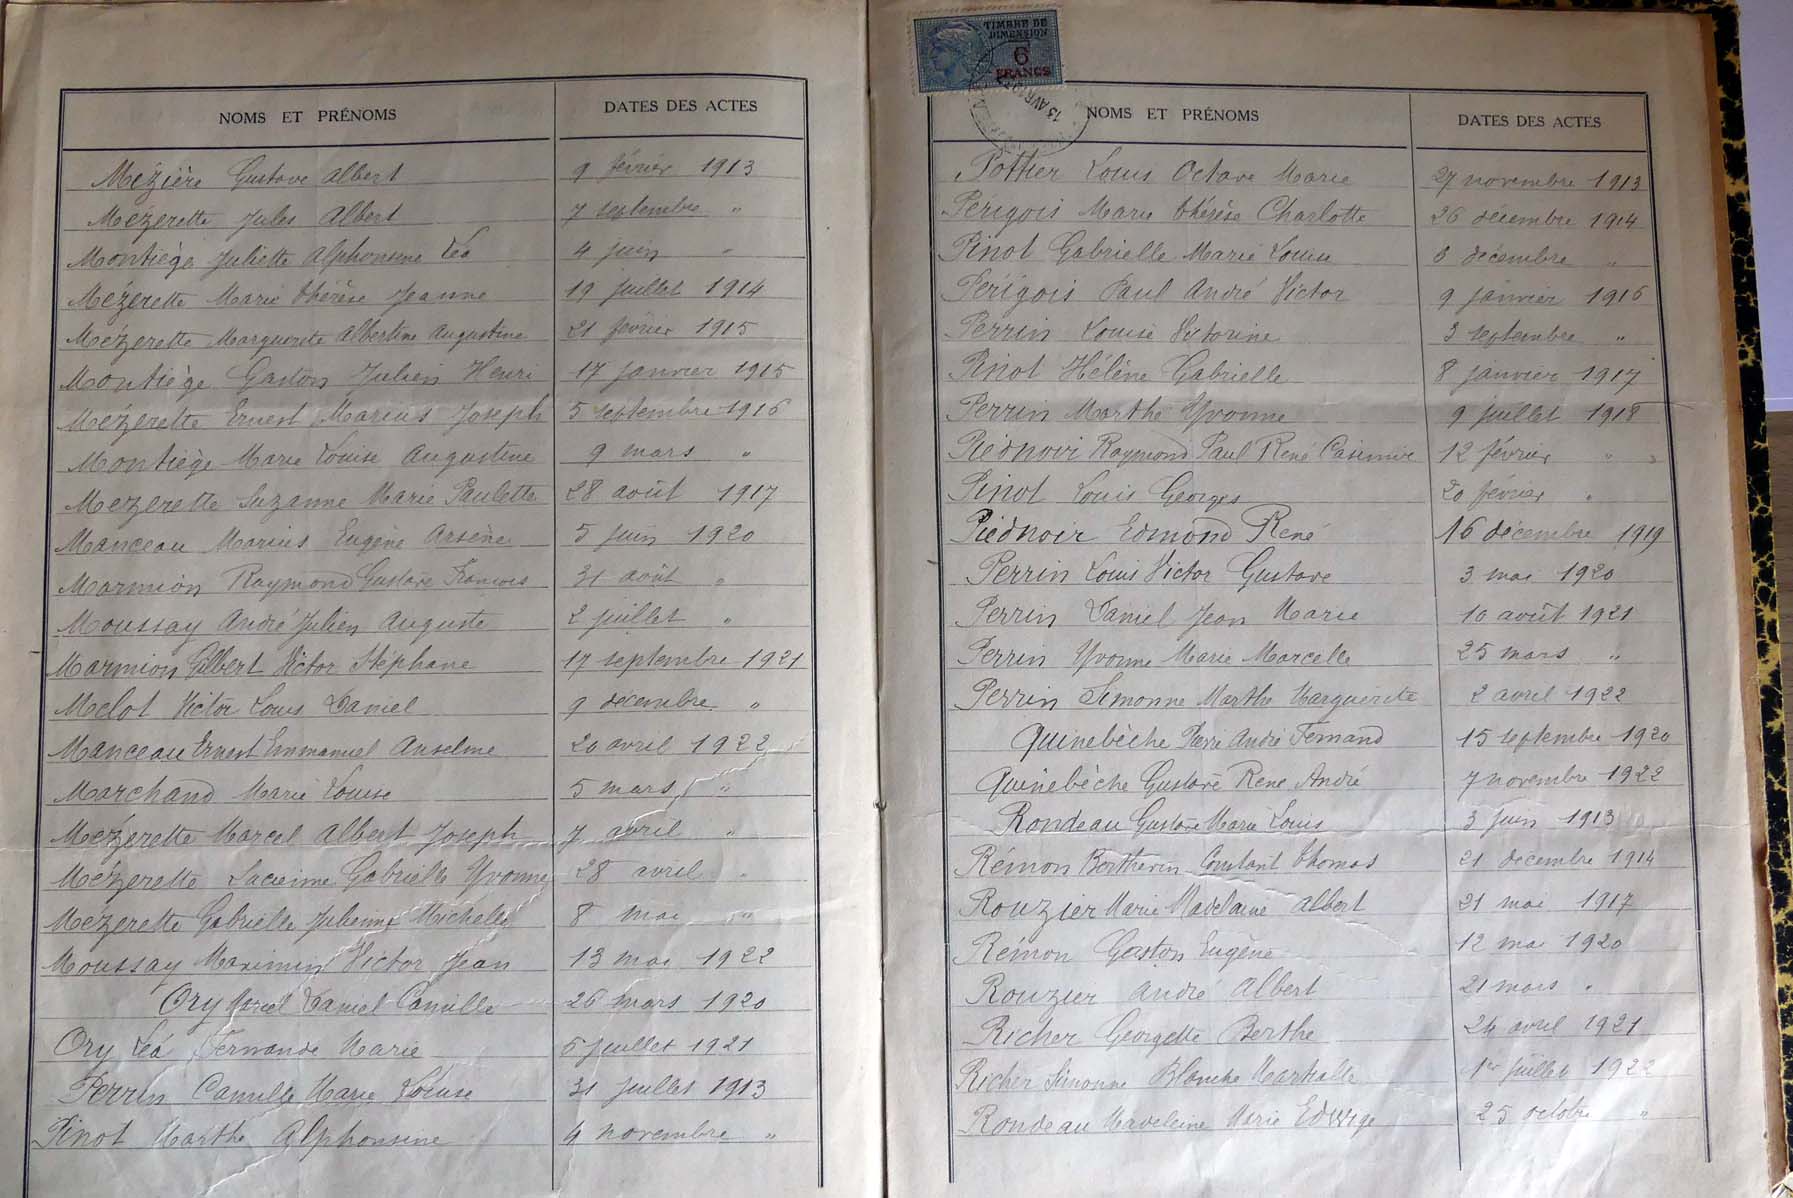 NOMS ET PRÉNOMS DATES DES ACTES
Mézière Gustave Albert 9 février 1913
Mézerette Jules Albert 7 septembre "
Montiège Juliette Alphonsine Léa 4 juin "
Mézerette Marie Thérèse Jeanne 19 juillet 1914
Mézerette Marguerite Albertine Augustine 21 février 1915
Montiège Gaston Julien Henri 17 janvier 1915
Mézerette Ernest Marius Joseph 5 septembre 1916
Montiège Marie Louise Augustine 9 mars "
Mezerette Suzanne Marie Paulette 28 août 1917
Manceau Marius Eugène Arsène 5 juin 1920
Marmion Raymond Gustave François 31 août "
Moussay André Julien Auguste 2 juillet "
Marmion Gilbert Victor Stéphane 17 septembre 1921
Melot Victor Louis Daniel 9 décembre "
Manceau Ernest Emmanuel Anselme 20 avril 1922
Marchand Marie Louise 5 mars "
Mézerette Marcel Albert Joseph 7 avril "
Mézerette Lucienne Gabrielle Yvonne 28 avril "
Mezerette Gabrielle Julienne Michelle 8 mai "
Moussay Maximin Victor Jean 13 mai 1922
Ory Marcel Daniel Camille 26 mars 1920
Ory Léa Fernande Marie 5 juillet 1921
Perrin Camille Marie Louise 31 juillet 1913
Pinot Marthe Alphonsine 4 novembre "
TIMBRE DE
DIMENSION
6
FRANCS
NOMS ET PRÉNOMS DATES DES ACTES
Pottier Louis Octave Marie 27 novembre 1913
Périgois Marie Thérèse Charlotte 26 décembre 1914
Pinot Gabrielle Marie Louise 8 décembre "
Périgois Paul André Victor 9 janvier 1916
Perrin Louise Victorine 3 septembre "
Pinot Hélène Gabrielle 8 janvier 1917
Perrin Marthe Yvonne 9 juillet 1918
Piednoir Raymond Paul René Casimir 12 février " "
Pinot Louis Georges 20 février "
Piednoir Edmond René 16 décembre 1919
Perrin Louis Victor Gustave 3 mai 1920
Perrin Daniel Jean Marie 10 août 1921
Perrin Yvonne Marie Marcelle 25 mars "
Perrin Simonne Marthe Marguerite 2 avril 1922
Quinebèche Pierre André Fernand 15 septembre 1920
Quinebèche Gustave René André 7 novembre 1922
Rondeau Gustave Marie Louis 3 juin 1913
Rémon Berthevin Constant Thomas 21 décembre 1914
Rouzier Marie Madelaine Albert 21 mai 1917
Rémon Gaston Eugène 12 mai 1920
Rouzier André Albert 21 mars "
Richer Georgette Berthe 24 avril 1921
Richer Simonne Blanche 1er juillet 1922
Rondeau Madeleine Marie Edwige 25 octobre "